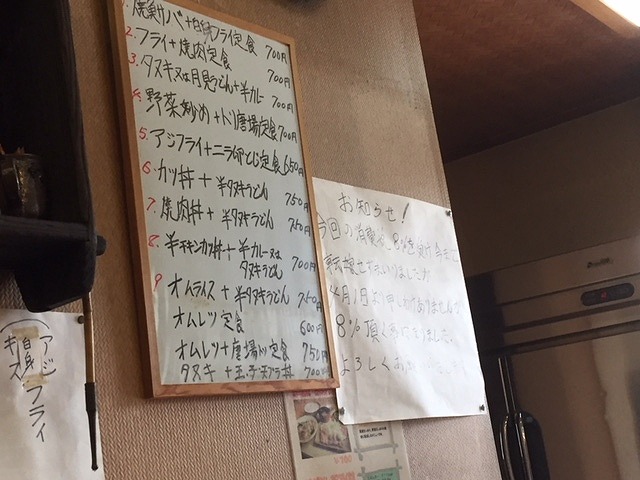 1. 焼サバ+白身フライ定食 700円
2. フライ+焼肉定食 700円
3. タヌキ又は月見うどん+半カレー 700円
4. 野菜炒め+トリ唐揚定食 700円
5. アジフライ+ニラ卵とじ定食 650円
6. カツ丼 + 半タヌキうどん 750
7. 焼肉丼 + 半タヌキうどん 750
8. 半チキンカツ丼+半カレー又は
タヌキうどん 700円
9 オムライス+半タヌキうどん 750
オムレツ定食 600円
オムレツ+唐揚り定食 750
タヌキ + 玉子天プラ丼 700
お知らせ!
今回の消費税
4月1日より申しわけありませんが
8% 頂く事になりました
よろしくお
アジ
白身
キス
フライ